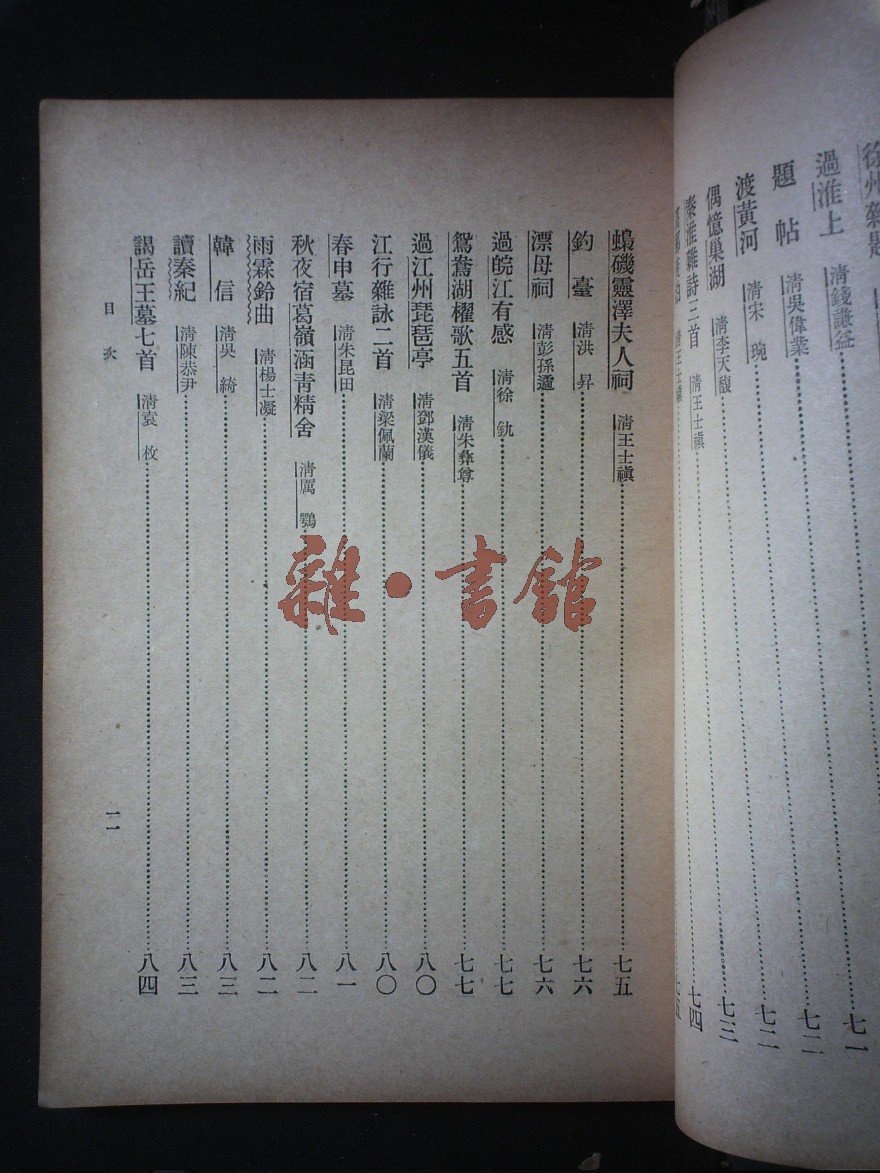 過淮上 清錢謙益 七一
題帖 清吳偉業 七二
渡黃河 清宋琬 七二
偶憶巢湖 清李天馥 七三
秦淮雜詩三首 清王士禛 七四
清王士禛 七五
蟂磯靈澤夫人祠 清王士禛 七五
釣臺 清洪昇 七六
漂母祠 清彭孫遹 七六
過皖江有感 清徐釚 七七
鴛鴦湖櫂歌五首 清朱彝尊 七七
過江州琵琶亭 清鄧漢儀 八〇
江行雜詠二首 清梁佩蘭 八〇
春申墓 清朱昆田 八一
秋夜宿葛嶺涵青精舍 清厲鶚 八二
雨霖鈴曲 清楊士凝 八二
韓信 清吳綺 八三
讀秦紀 清陳恭尹 八三
謁岳王墓七首 清袁枚 八四
目次
一一
雜·書館